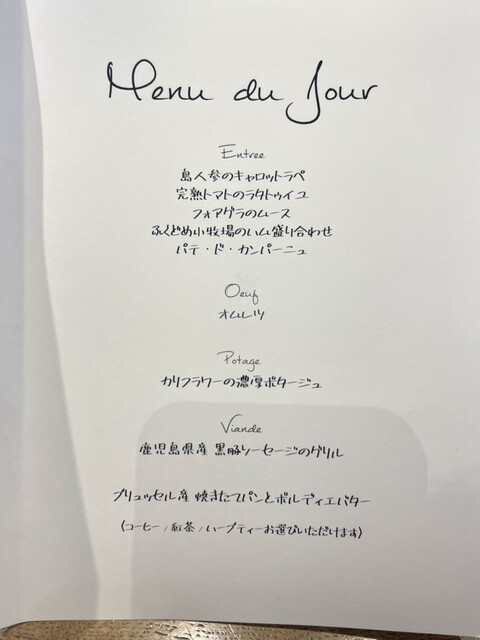 Menu du Jour
Entree
島人参のキャロットラペ
完熟トマトのラタトゥイユ
フォアグラのムース
ふくどめ小牧場のハム盛り合わせ
パテ・ド・カンパーニュ
Oeuf
オムレツ
Potage
カリフラワーの濃厚ポタージュ
Viande
鹿児島県産 黒豚ソーセージのグリル
ブリュッセル産 焼きたてパンとボルディエバター
(コーヒー/紅茶/ハーブティーお選びいただけます)